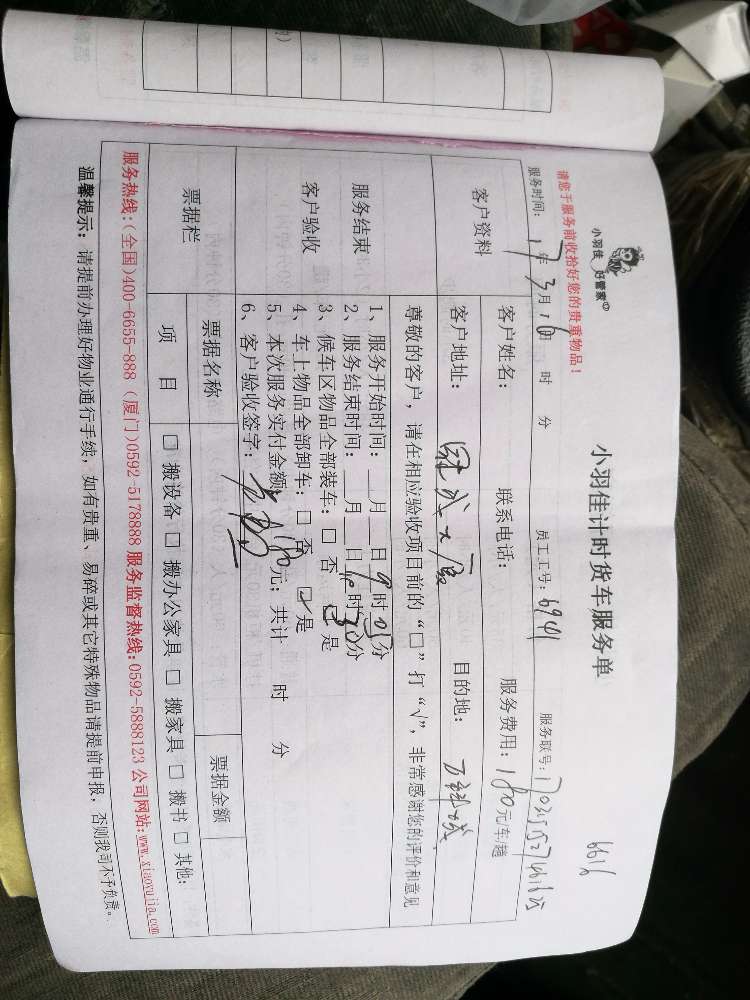 小羽佳 好管家
小羽佳计时货车服务单
6616
请您于服务前收拾好您的贵重物品！
服务时间： 17年3月16日 时 分 员工工号：6941 服务联号：
客户资料
客户姓名： 联系电话： 服务费用：180元车/趟
客户地址： 大厦 目的地： 万科城
服务结束
客户验收
尊敬的客户，请在相应验收项目前的“□”打“√”，非常感谢您的评价和意见
1、服务开始时间：__月__日9时05分
2、服务结束时间：__月__日10时30分
3、候车区物品全部装车：□ 否 ☑ 是
4、车上物品全部卸车：□ 否 ☑ 是
5、本次服务实付金额180元；共计 时 分
6、客户验收签字：
票据栏
票据名称 票据金额
项 目 □ 搬设备 □ 搬办公家具 □ 搬家具 □ 搬书 □ 其他:
服务热线:(全国)400-6655-888 (厦门)0592-5178888 服务监督热线:0592-5888123 公司网站:www.xiaoyujia.com
温馨提示：请提前办理好物业通行手续，如有贵重、易碎或其它特殊物品请提前申报，否则我司不予负责。